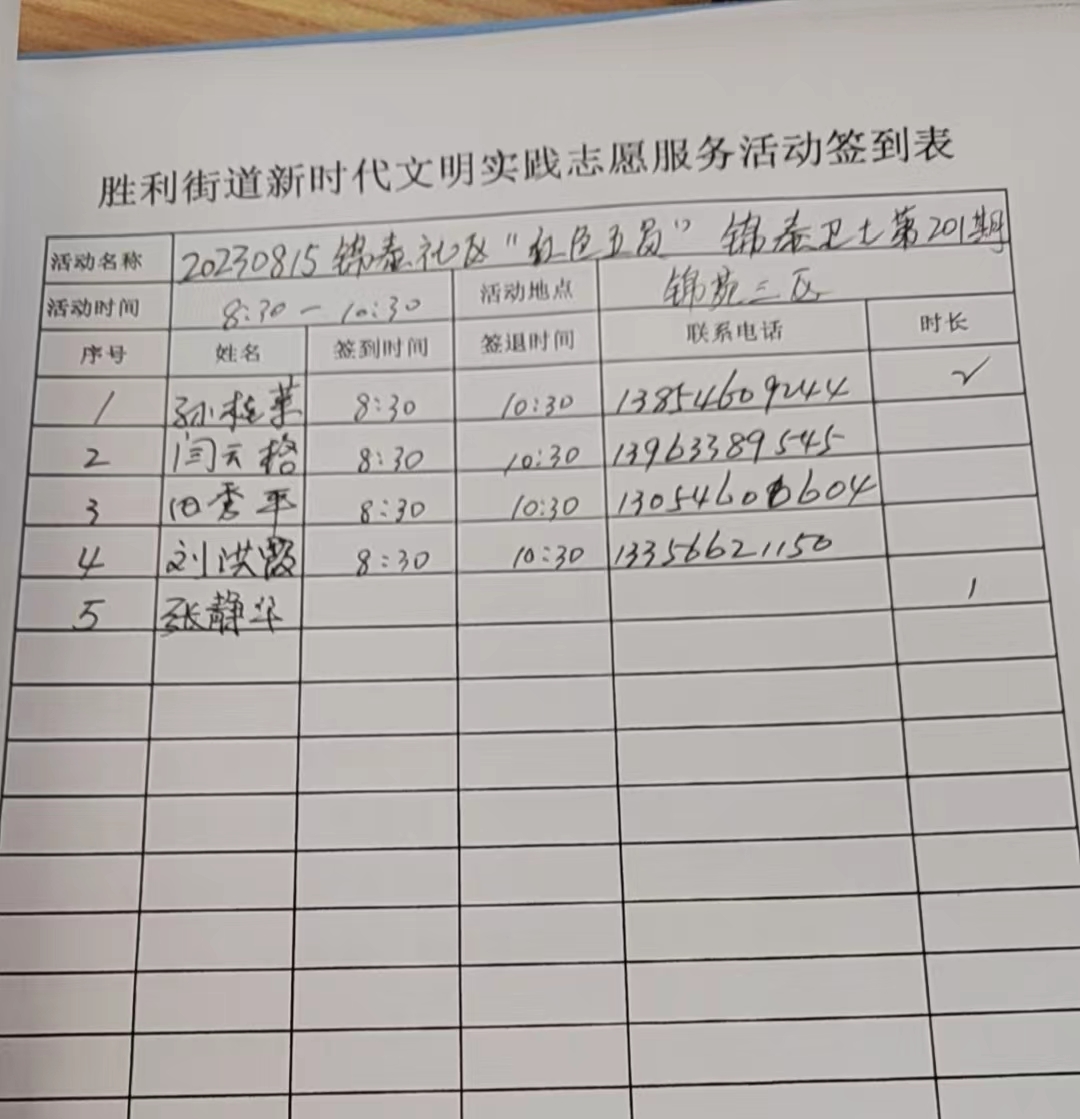 胜利街道新时代文明实践志愿服务活动签到表
活动名称 20230815锦泰社区“红色五员”锦泰卫士第201期
活动时间 8:30—10:30 活动地点 锦苑三区
序号 姓名 签到时间 签退时间 联系电话 时长
1 孙桂英 8:30 10:30 13854609244
2 闫云格 8:30 10:30 13963389545
3 田秀平 8:30 10:30 13054600604
4 刘洪霞 8:30 10:30 13356621150
5 张静华